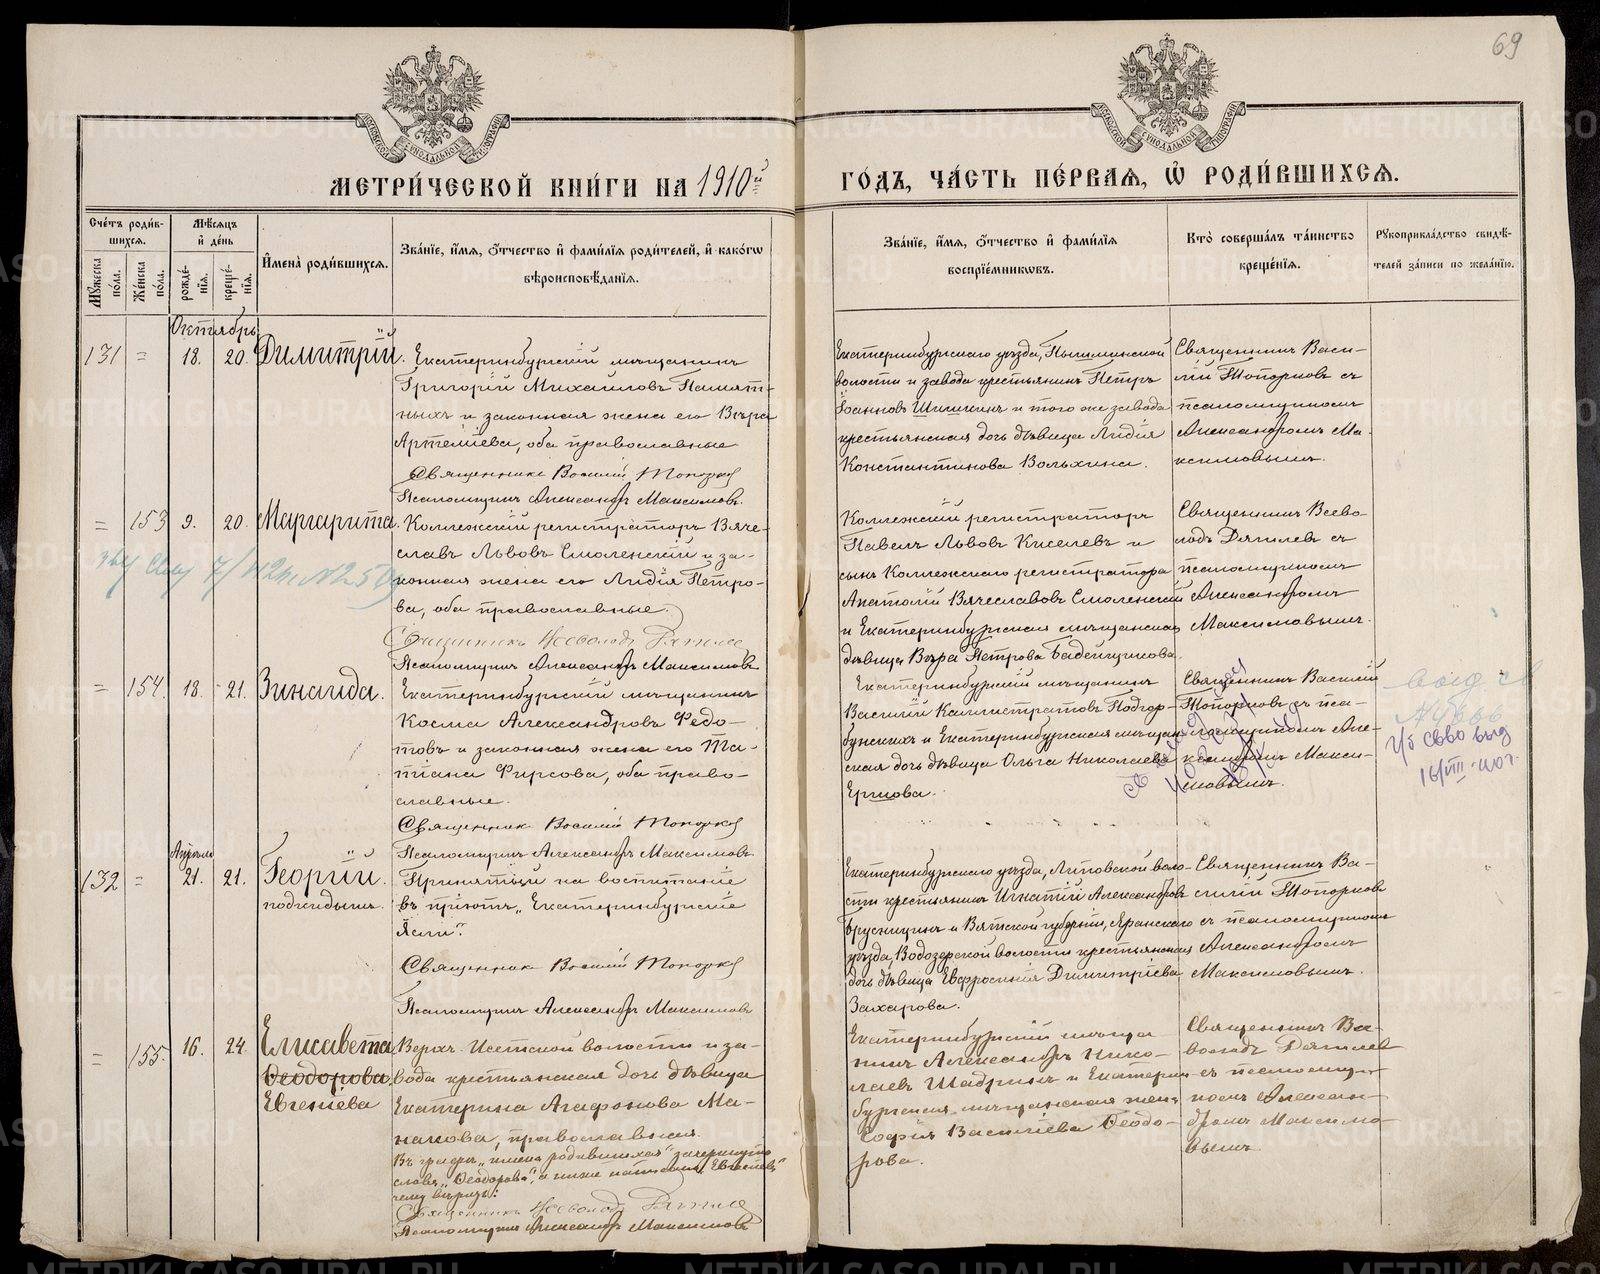 69
МЕТРИ́ЧЕСКОЙ КНИ́ГИ НА 1910й
ГО́ДЪ, ЧА́СТЬ ПЕ́РВАѦ, Ѿ РОДИ́ВШИХСѦ.
Сче́тъ роди́в-
шихсѧ.
Мꙋ́жеска по́ла.
Же́нска по́ла.
Мѣ́сѧцъ
и҆ де́нь
рожде́-
нїѧ.
креще́-
нїѧ.
И҆мена̀ роди́вшихсѧ.
Зва́нїе, и҆́мѧ, ѻ҆́тчество и҆ фами́лїѧ роди́телей, и҆ како́гѡ
вѣроисповѣ́данїѧ.
Зва́нїе, и҆́мѧ, ѻ҆́тчество и҆ фами́лїѧ
воспрїе́мникѡвъ.
Кто̀ соверша́лъ та́инство
креще́нїѧ.
Рꙋкоприкла́дство свидѣ́-
телей за́писи по жела́нїю.
Октябрь
131 = 18. 20. Димитрій.
Екатеринбургскій мѣщанинъ
Григорій Михаиловъ Памят-
ныхъ и законная жена его Вѣра
Артеміева, оба православные
Священникъ Василій Топорков
Псаломщикъ Александръ Максимовъ.
Екатеринбургскаго уѣзда, Пышминской
волости и завода крестьянинъ Петръ
Іоанновъ Шишкинъ и того же завода
крестьянская дочь дѣвица Лидія
Константинова Вольхина.
Священникъ Васи-
лій Топорковъ съ
псаломщикомъ
Александромъ Ма-
ксимовымъ.
= 153 9. 20. Маргарита.
Коллежскій регистраторъ Вяче-
славъ Львовъ Смоленскій и за-
конная жена его Лидія Петро-
ва, оба православные.
Священникъ Всеволодъ Дягилев
Псаломщикъ Александръ Максимовъ
Коллежскій регистраторъ
Павелъ Львовъ Киселевъ и
сынъ Коллежскаго регистратора
Анатолій Вячеславовъ Смоленскій
и Екатеринбургская мѣщанская
дѣвица Вѣра Петрова Бадейщикова.
Священникъ Всево-
лодъ Дягилевъ съ
псаломщикомъ
Александромъ
Максимовымъ.
= 154. 18. 21. Зинаида.
Екатеринбургскій мѣщанинъ
Косма Александровъ Федо-
товъ и законная жена его Та-
тіана Фирсова, оба право-
славные.
Священник Василій Топорков
Псаломщикъ Александръ Максимовъ
Екатеринбургскій мѣщанинъ
Василій Каллистратовъ Подгор-
бунскихъ и Екатеринбургская мѣщан-
ская дочь дѣвица Ольга Николаева
Ершова.
Священникъ Василій
Топорковъ съ пса-
ломщикомъ Але-
ксандромъ Макси-
мовымъ.
выд. св
г/б свво выд
16/VIII
Апрѣля
132 = 21. 21. Георгій.
подкидышъ.
Принятый на воспитаніе
въ пріютъ „Екатеринбургскіе
Ясли“.
Священник Василій Топорков
Псаломщикъ Александръ Максимовъ
Екатеринбургскаго уѣзда, Липовской воло-
сти крестьянинъ Игнатій Александровъ
Брусницынъ и Вятской губерніи, Яранскаго
уѣзда, Водозерской волости крестьянская
дочь дѣвица Евфросинія Димитріева
Захарова.
Священникъ Ва-
силій Топорковъ
съ псаломщикомъ
Александромъ
Максимовымъ.
= 155. 16. 24. Елисавета
Ѳеодорова.
Евгеніева
Верхъ-Исетской волости и за-
вода крестьянская дочь дѣвица
Екатерина Агафонова Ма-
накова, православная.
Въ графѣ „имена родившихся“ зачеркнуто
слово „Ѳеодорова“, а ниже написано „Евгеніева“
чему вѣрить:
Священникъ Всеволодъ Дягилев
Псаломщикъ Александръ Максимовъ
Екатеринбургскій мѣща-
нинъ Александръ Нико-
лаевъ Шадринъ и Екатерин-
бургская мѣщанская жена
Софія Василіева Ѳеодо-
рова.
Священникъ Все-
володъ Дягилев
съ псаломщи-
комъ Алексан-
дромъ Максимо-
вымъ.